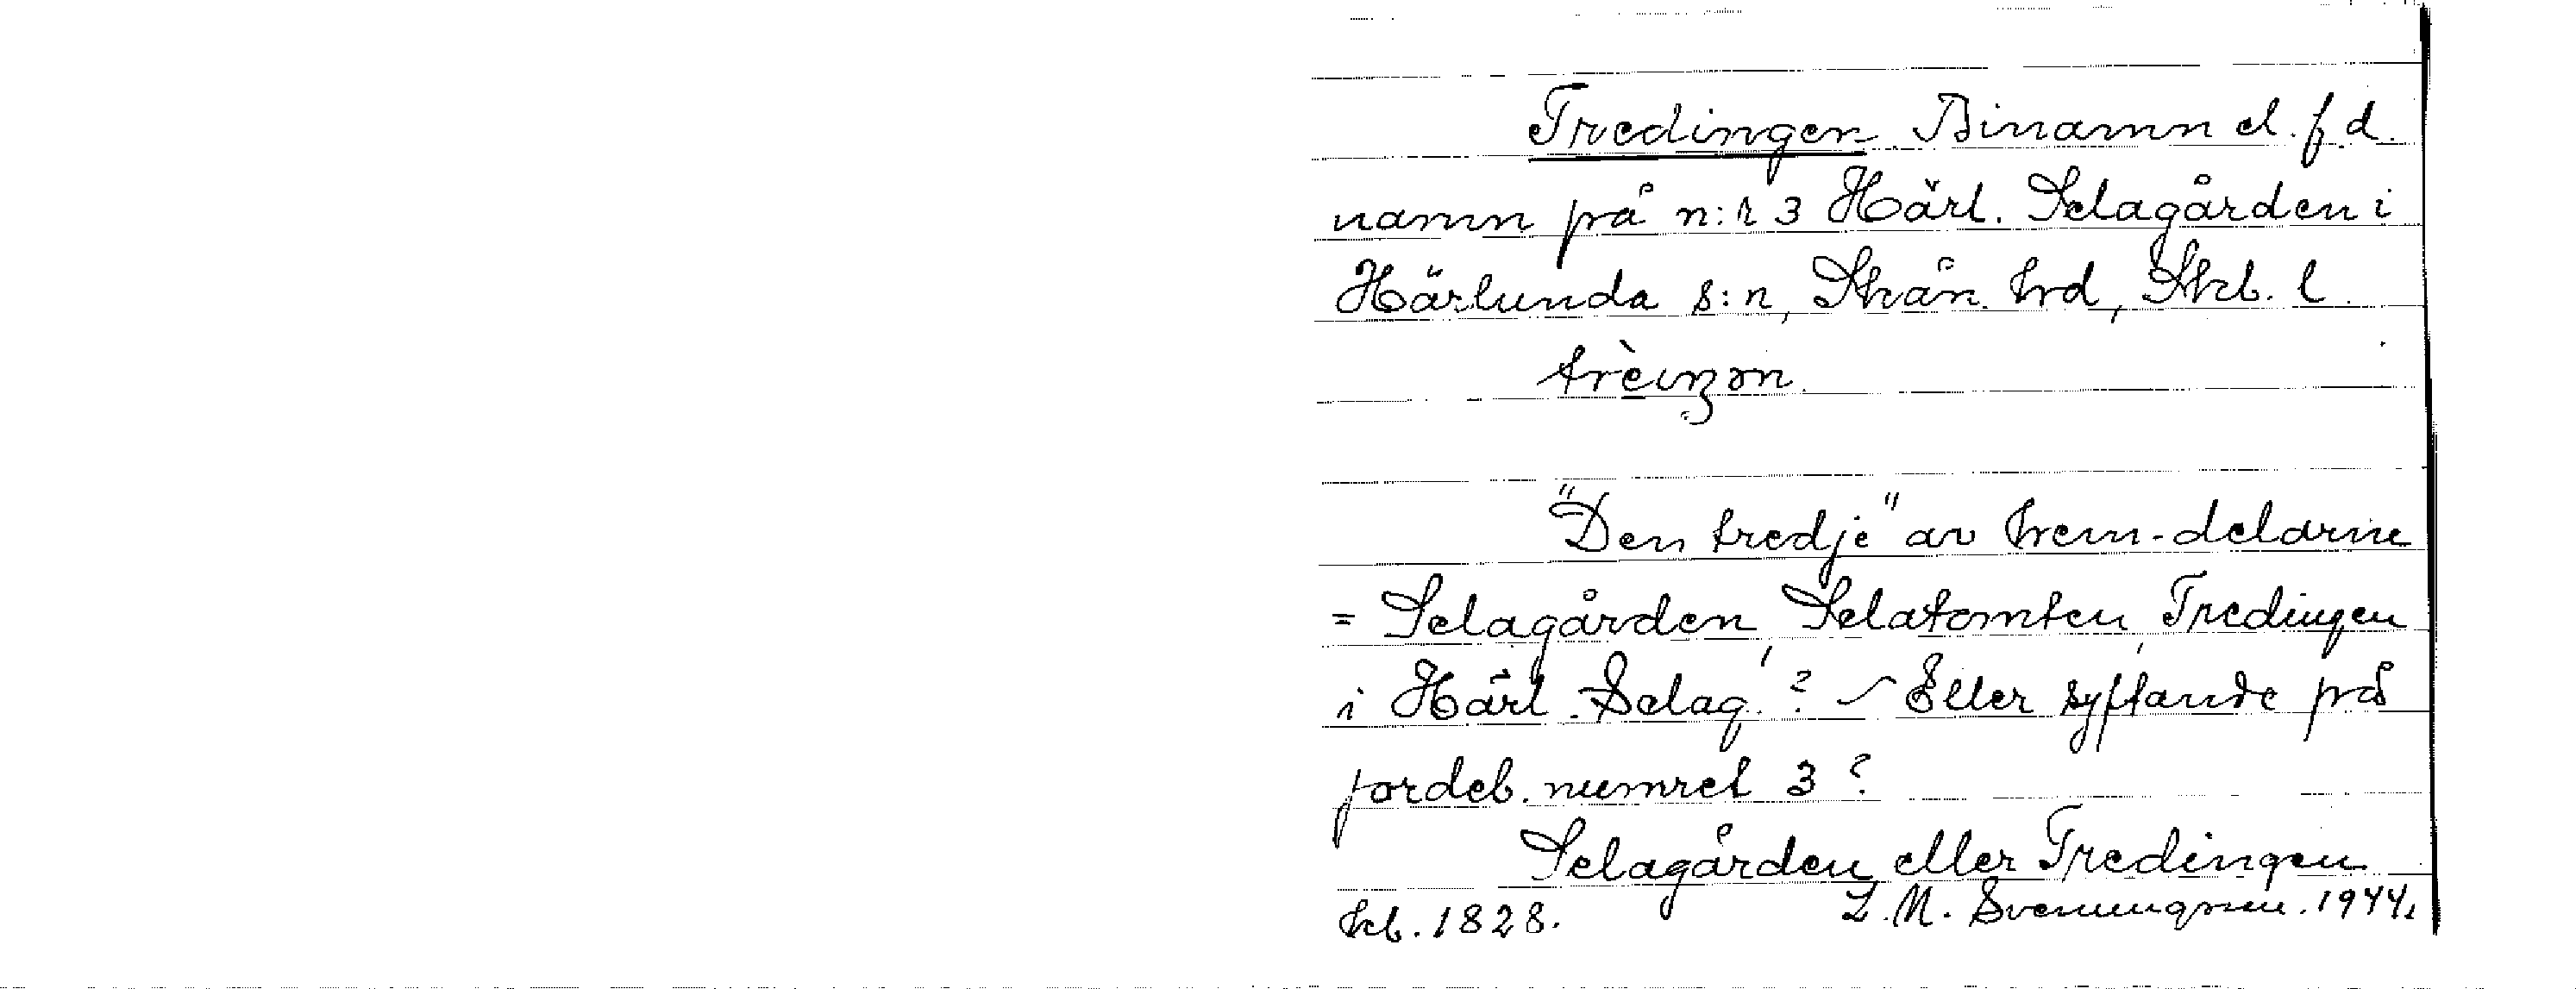 Tredingen Binamn el. f.d.
namn på n:r 3 Härl. Selagården i
Härlunda s:n, Skån. hrd, Skb. l.
trèiŋən
"Den tredje" av hem-delarne
= Selagården, Selatomten, Tredingen
i Härl. Selag.? – Eller syftande på
jordeb. numret 3?
Selagården eller Tredingen
kb. 1828. L. M. Svenungsson. 1944.